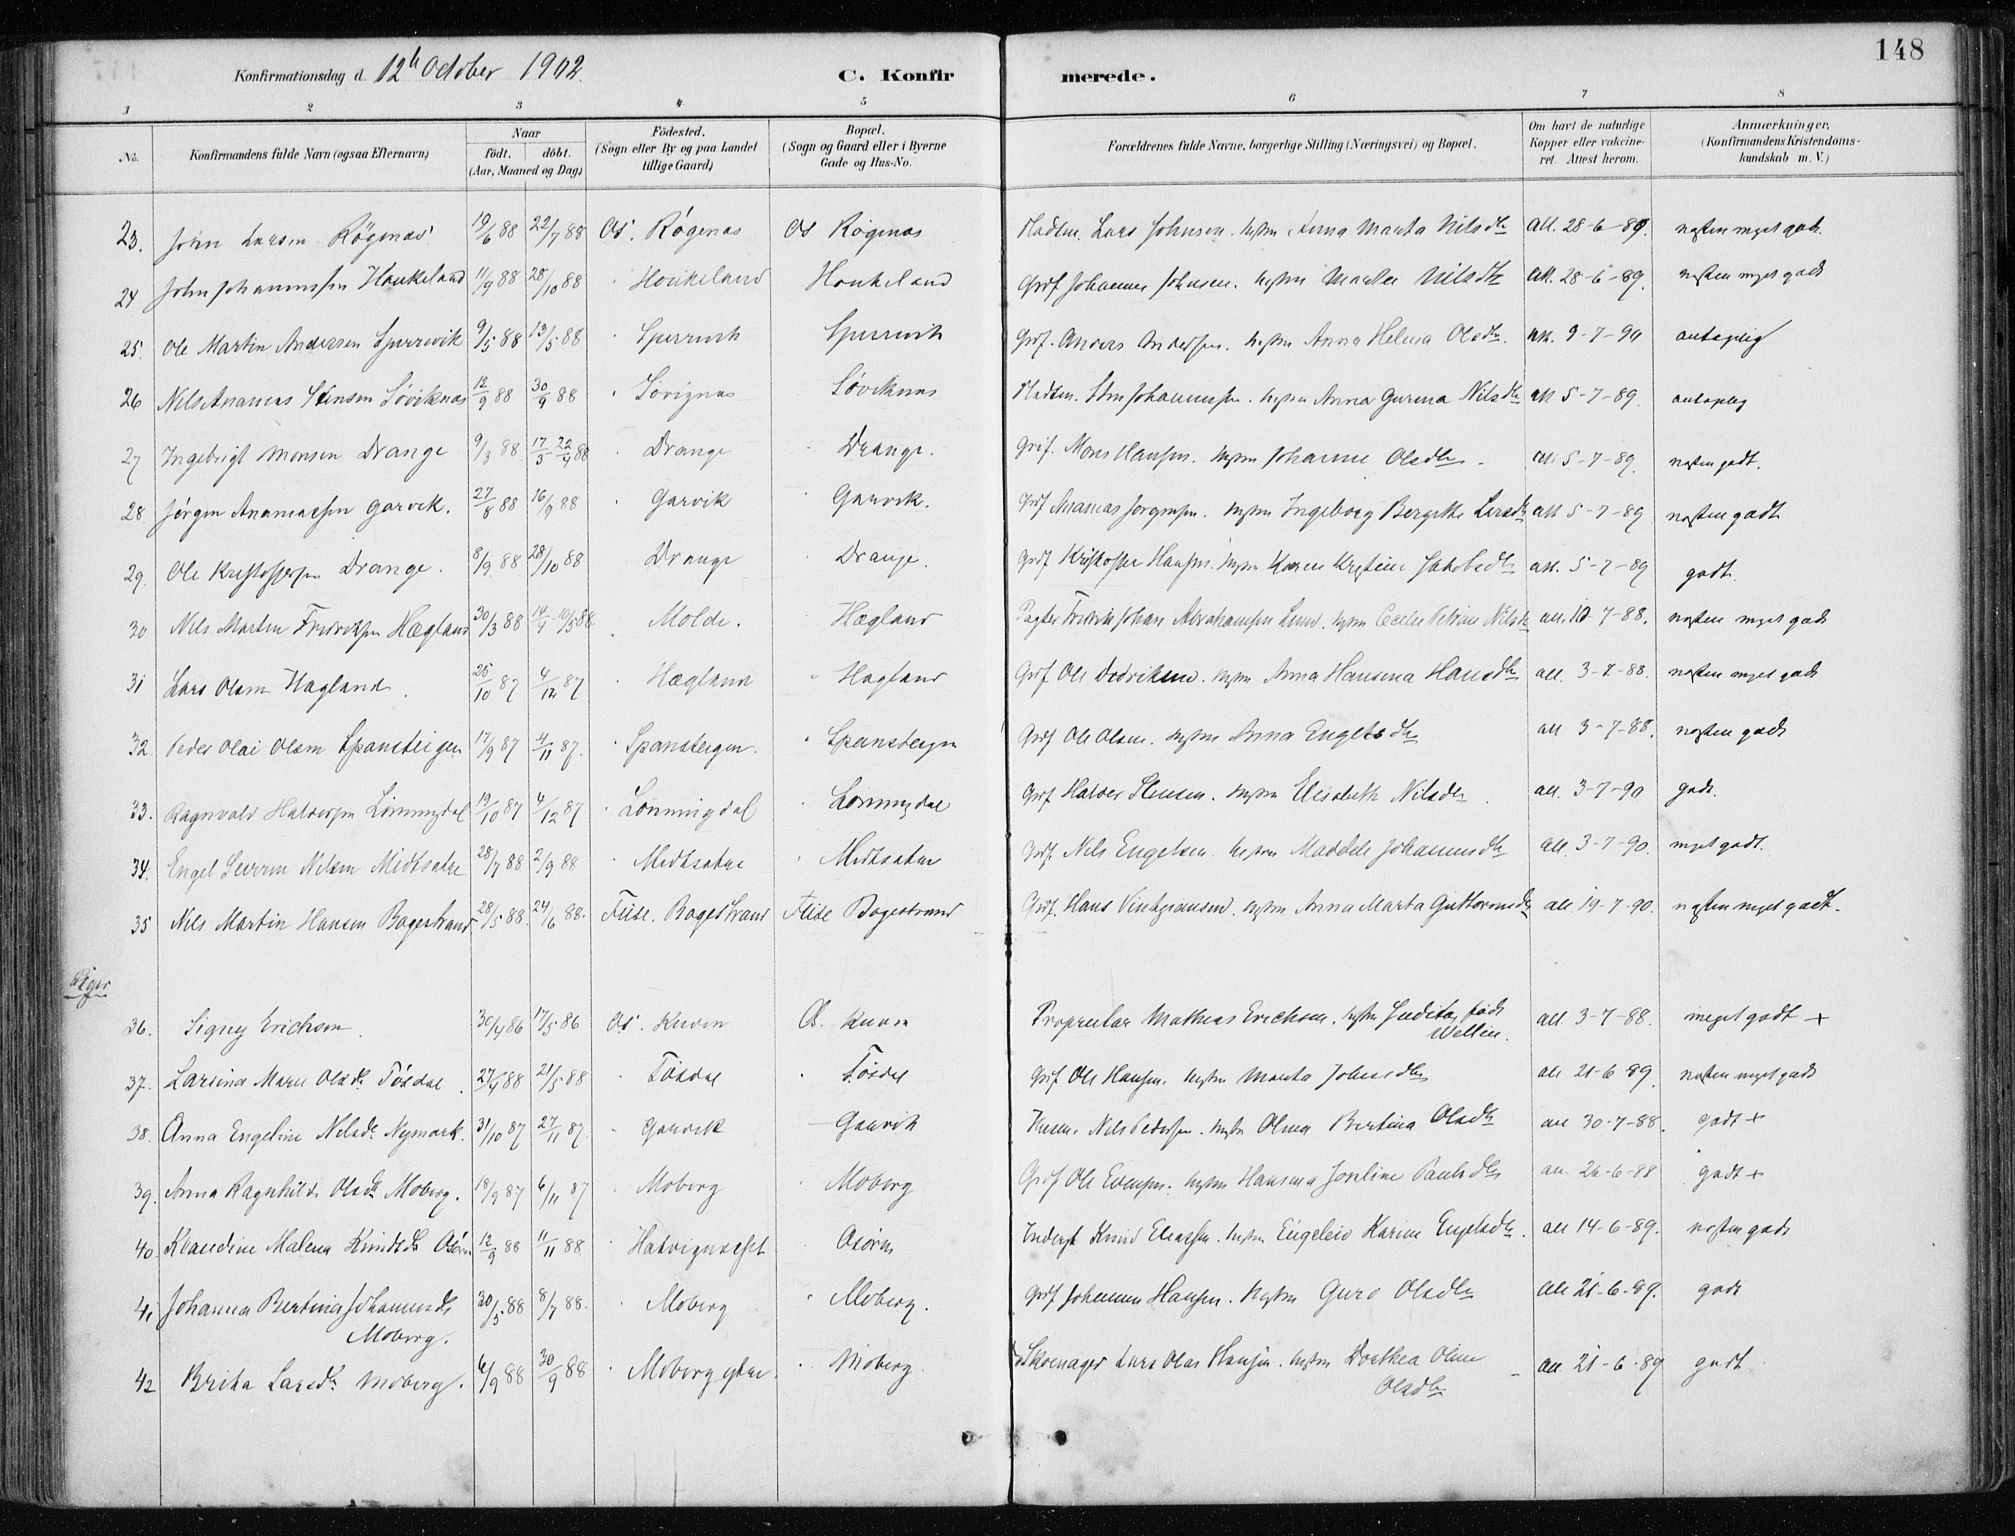 148
Konfirmationsdag d. 12th October 1902.
C. Konfirmerede.
1 2 3 4 5 6 7 8
No.
Konfirmandens fulde Navn (ogsaa Efternavn)
Naar
født. døbt.
(Aar, Maaned og Dag)
Fødested.
(Sogn eller By og paa Landet
tillige Gaard)
Bopæl.
(Sogn og Gaard eller i Byerne
Gade og Hus-No.
Forældrenes fulde Navne, borgerlige Stilling (Næringsvei) og Bopæl.
Om havt de naturlige
Kopper eller vakcine-
ret. Attest herom.
Anmærkninger.
(Konfirmandens Kristendoms-
kundskab m. V.)
23. John Larsen Røgenæs 19/6 88 22/7 88 Os. Røgenæs Os Røgenæs Lars Johnsen. Hustru Anna Marta Nilsdtr att. 28-6-89. næsten meget godt.
24 John Johannessen Haukeland 11/9 88 28/10 88 Haukeland Haukeland Grdf Johannes Johnsen. Hustru Marta Nilsdtr att. 28-6-89. næsten meget godt
25. Ole Martin Andersen Spurrevik 9/5 88 13/5 88 Spurrevik Spurrevik Grdf. Anders Andersen. Hustru Anna Helena Olsdtr. att. 9-7-90 antagelig
26 Nils Ananias Stensen Søviknæs 12/9 88 30/9 88 Søvignæs Søviknæs Sten Johannessen. Hustru Anna Gurina Nilsdtr att 5-7-89. antagelig
27 Ingebrigt Monsen Drange 9/3 88 17/3 - 22/4 88 Drange Drange. Grdf. Mons Hansen. Hustru Johanne Olsdtr att. 5-7-89. næsten godt.
28. Jørgen Ananiassen Garvik. 27/8 88 16/9 88 Garvik Garvik. Grdf Ananias Jørgensen. Hustru Ingeborg Bergitte Larsdtr att 5-7-89 næsten godt
29. Ole Kristoffersen Drange. 8/9 88 28/10 88 Drange Drange. Grdf Kristoffer Hansen. Hustru Karen Kristine Jakobsdtr att. 5-7-89 godt.
30 Nils Martin Fredriksen Hægland 30/3 88 14/4 - 10/5 88. Molde. Hægland Fredrik Johan Abrahamsen Lund. Hustru Cecilie Petrine Nilsdtr att. 10-7-88. næsten meget godt
31 Lars Olsen Hægland. 25/10 87 4/12 87 Hægland Hægland Grdf Ole Hustru Anna Hansena Hansdtr att. 3-7-88. næsten meget godt
32. Peder Olai Olsen Spansteigen 17/9 87 4/11 87. Spansteigen. Spansteigen Grdf Ole Olsen. Hustru Anna Engelsdtr att 3-7-88. næsten godt
33. Ragnvald Halvorsen Lønningdal 19/10 87 4/12 87 Lønningdal Lønningdal Grdf Halvor Stensen. Hustru Elisabeth Nilsdtr. att. 3-7-90 godt.
34. Engel Severin Nilsen Midtsæter 28/7 88 2/9 88 Midtsæter Midtsæter Grdf. Nils Engelsen. Hustru Maddele Johannesdtr att. 3-7-90. meget godt.
35 Nils Martin Hansen Bogestrand 28/5 88. 24/6 88. Fuse. Bogestrand Fuse Bogestrand Grdf. Hans Hustru Anna Marta Guttormsdtr att 19-7-90. næsten meget godt.
Piger
36. Signy Erichsen 30/4 86 17/5 86 Os. Kuven Os. Kuven Proprietær Mathias Erichsen. Hustru Judita, født
Wellin. att 3-7-88. meget godt +
37. Larsina Marie Olsdtr Tøsdal. 27/4 88 21/5 88 Tøsdal Tøsdal Grdf Ole Hansen. Hustru Marta Johnsdtr att 21-6-89. næsten meget godt
38. Anna Engeline Nilsdtr Nymark. 31/10 87 27/11 87. Gaarvik Gaarvik Husm. Nils Pedersen. Hustru Olina Bertina Olsdtr att 30-7-88. godt +
39. Anna Ragnhilde Olsdtr Moberg. 18/9 87 6/11 87 Moberg Moberg Grdf Ole Evensen. Hustru Hansina Joneline Paulsdtr att. 26-6-88 godt +
40. Klaudine Malena Knudsdtr Osøren 12/9 88 11/11 88 Hatvignæsset Osøren Knud Eliassen. Hustru Engeleiv Karine Engelsdtr. att 14-6-89. næsten godt
41 Johanna Bertina Johannesdtr
Moberg. 30/5 88 8/7 88. Moberg Moberg. Grdf Johannes Hansen. Hustru Guro Olsdtr att 21-6-89. godt
42 Brita Larsdtr Moberg. 6/9 88 30/9 88 Moberg ytre Moberg. Skomager Lars Olai Hansen. Hustru Dorthea Oline
Olsdtr att. 21-6-89 godt